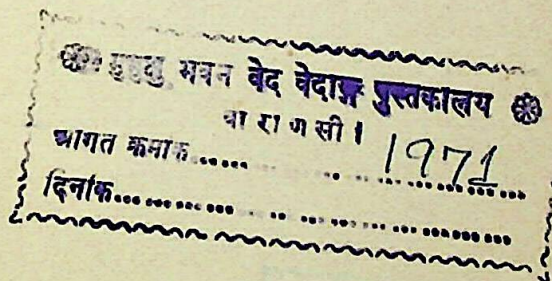 मुमुक्षु भवन वेद वेदाङ्ग पुस्तकालय
वा रा ण सी ।
आगत क्रमांक..... 1971
दिनांक.....